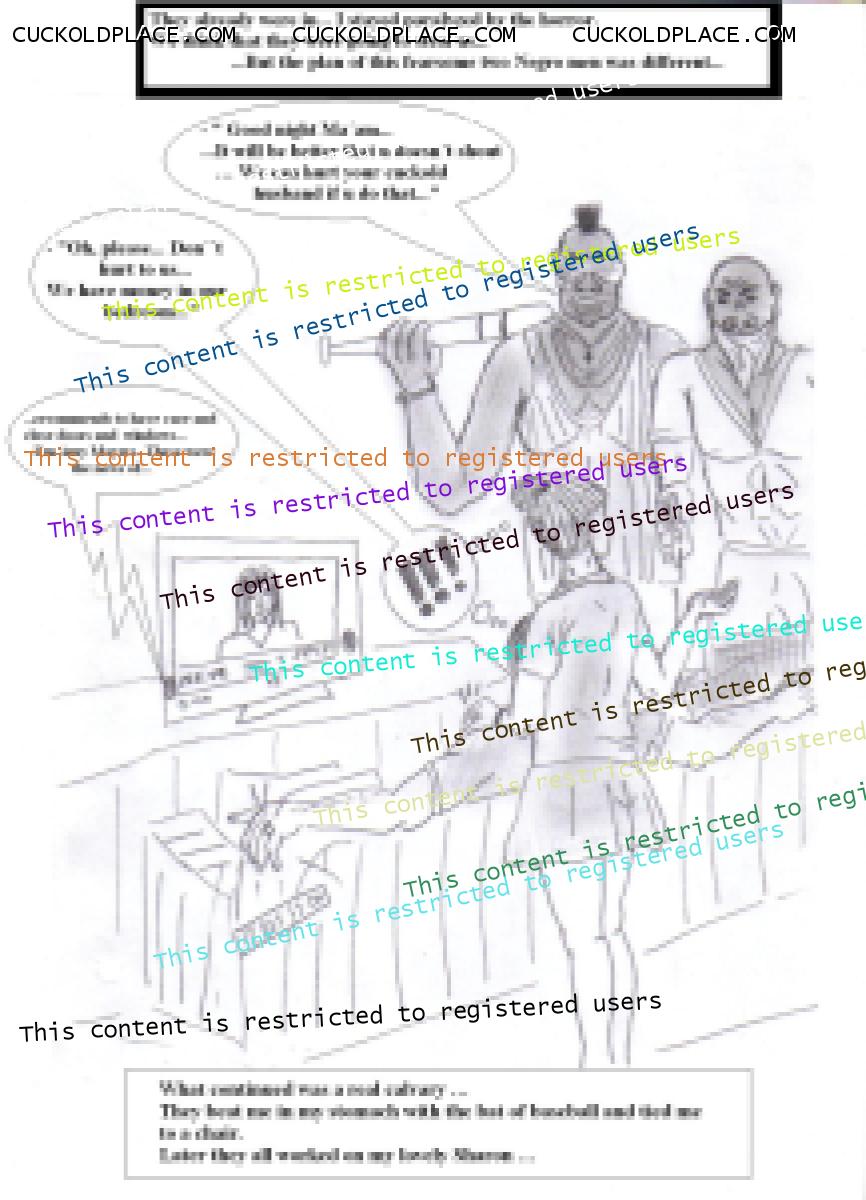 CUCKOLDPLACE.COM CUCKOLDPLACE.COM CUCKOLDPLACE.COM
They already were in... I stayed paralyzed by the horror.
...But the plan of this fearsome two Negro men was different...
ed users
- " Good night Ma'am...
...It will be better that u doesn't shout
... We can hurt your cuckold
husband if u do that..."
- "Oh, please... Don't
hurt to us...
We have money in our
This content is restricted to registered users
This content is restricted to registered users
...recommends to have care and
close doors and windows...
This content is restricted to registered users
This content is restricted to registered users
!!!
This content is restricted to registered users
This content is restricted to registered use
This content is restricted to reg
This content is restricted to registered
This content is restricted to regi
This content is restricted to registered users
This content is restricted to registered users
What continued was a real calvary ...
They beat me in my stomach with the bat of baseball and tied me
to a chair.
Later they all worked on my lovely Sharon ...